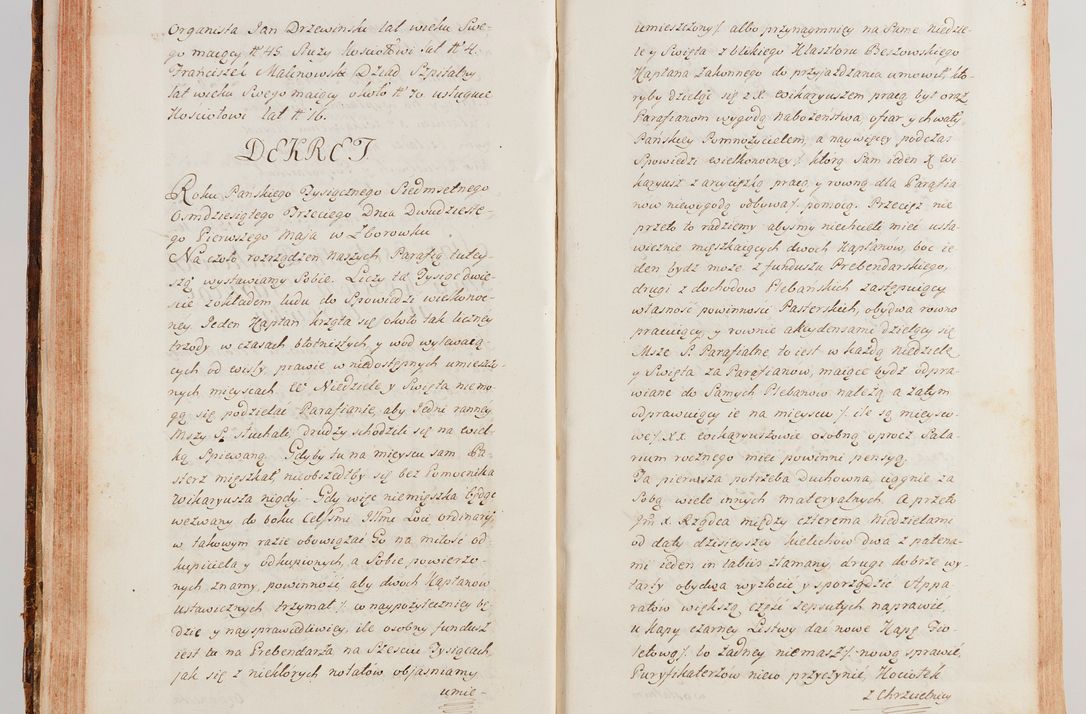 Organista Jan Drzewinski lat wieku Swe-
go maiący № 45 służy Kosciołowi lat № 4.
Franciszek Malenowski Dziad Szpitalny
lat wieku Swego maiący około № 70 usługuie
Kosciołowi lat № 16.
DEKRET
Roku Panskiego Tysiącznego Siedmsetnego
Osmdziesiątego Trzeciego Dnia Dwudzieste-
go Pierwszego Maja w Zborowku
Na czoło rozrządzen naszych Parafią tutey-
szą wystawiamy Sobie. Liczy ta Tysiąc dwie-
scie zokładem ludu do Spowiedzi wielkonoc-
ney. Jeden Kapłan krząta się około tak liczney
trzody w czasach błotnistych y wod wylewaią-
cych od wisły prawie w niedostępnych umieszczo-
nych mieyscach. W Niedziele y Swięta niemo
gą się podzielac Parafianie, aby Jedni ranney
Mszy S. słuchali, drudzy schodzili się na wiel-
ką Spiewaną. Gdyby tu na mieyscu sam Pa-
sterz mieszkał, nieobszedłby się bez Pomocnika
Wikaryusza nigdy. Gdy więc niemięszka będąc
wezwany do boku Celsmi Illmi Loci ordinarij
w takowym razie obowiązac Go na miłosc od-
kupiciela y odkupionych, a Sobie powierzo-
nych, znamy powinnosc, aby dwoch Kapłanow
ustawicznych trzymał /. co naypozyteczniey bę-
dzie y naysprawiedliwiey, ile osobny fundusz
iest tu na Prebendarza na Szesciu Tysiącach,
jak się z niektorych notatow objasniamy
umie-
umieszczony/. albo przynaymniey na Same niedzie-
le y Swięta z bliskiego Klasztoru Beszowskiego
Kapłana zakonnego do przyjazdzania umowił, kto-
ryby dzieląc się z X Wikaryuszem pracą był oraz
Parafianom wygodą nabożenstwa, ofiar y chwały
Panskiey Pomnożycielem, a naywięcey podczas
Spowiedzi wielkonocney /. ktorą Sam ieden X Wi
karyusz z arcyciężką pracą y rowną dla Parafia
now niewygodą odbywa/. pomocą. Przeciż nie
przeto to radziemy abysmy niechcieli miec usta
wicznie mięszkaiących dwoch Kapłanow, boc ie
den bydz może z funduszu Prebendarskiego,
drugi z dochodow Plebanskich zastępuiący
własnosc powinnosci Pasterskich, obydwa rowno
pracuiący, y rownie akcydensami dzielący się
Msze S. Parafialne, to iest w każdą niedzielę
y Swięta za Parafianow, maiące bydz odpra-
wiane do Samych Plebanow należą, a zatym
odprawuiący ie na mieyscu /. ile są mieysco-
we/. XX Wikaryuszowie osobną oprocz Sala-
rium rocznego miec powinni pensyą.
Ta pierwsza potrzeba duchowna, ciągnie za
Sobą wiele innych materyalnych. A przeto
Jm X. Rządca między czterema Niedzielami
od daty dzisieyszey kielichow dwa z patena-
mi ieden in labiis złamany, drugi dobrze wy-
tarty obydwa wyzłocic y sporządzic. Appa-
ratow większą częsc zepsutych naprawic,
u kapy czarney Listwy dac nowe Kapę Fio-
letową /. bo żadney niemasz/. nową sprawic,
Puryfikaterzow nieco przyczynic, Kociołek
z Chrzcielnicy